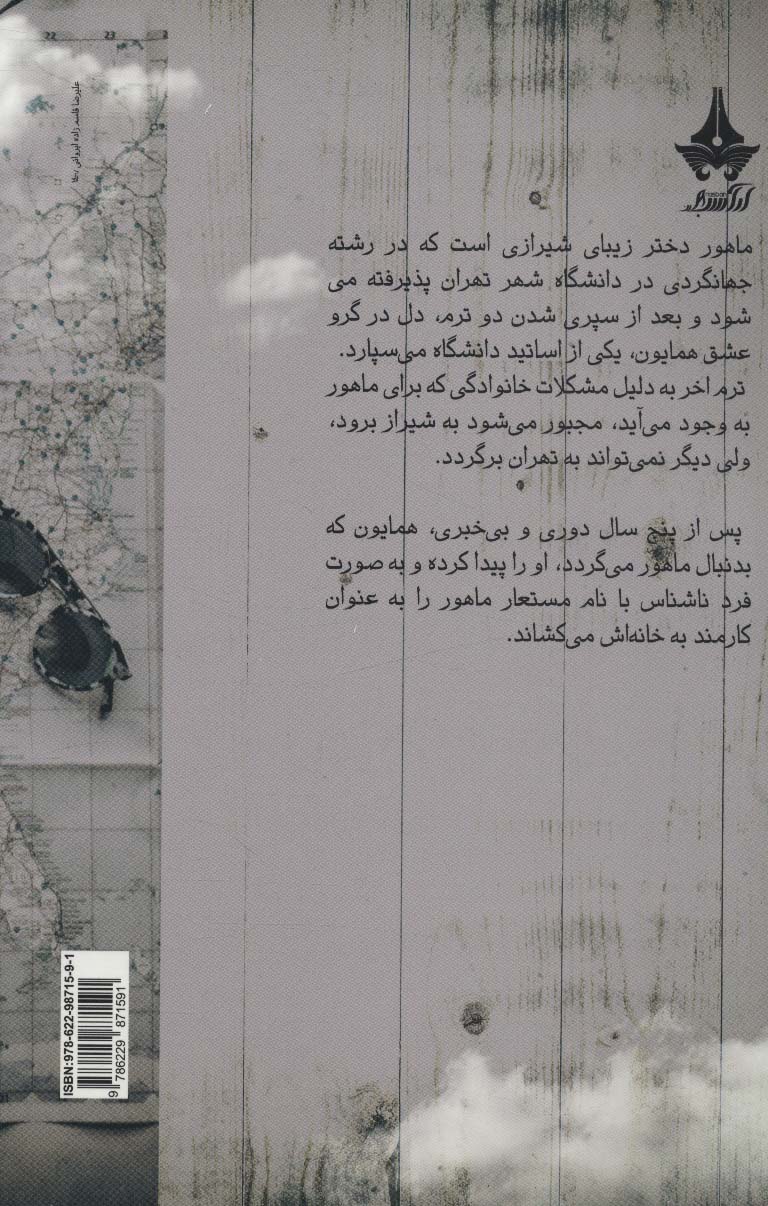 ماهور دختر زیبای شیرازی است که در رشته
جهانگردی در دانشگاه شهر تهران پذیرفته می
شود و بعد از سپری شدن دو ترم، دل در گرو
عشق همایون، یکی از اساتید دانشگاه می‌سپارد.
ترم اخر به دلیل مشکلات خانوادگی که برای ماهور
به وجود می‌آید، مجبور می‌شود به شیراز برود،
ولی دیگر نمی‌تواند به تهران برگردد.
پس از پنج سال دوری و بی‌خبری، همایون که
بدنبال ماهور می‌گردد، او را پیدا کرده و به صورت
فرد ناشناس با نام مستعار ماهور را به عنوان
کارمند به خانه‌اش می‌کشاند.
علیرضا قاسم زاده ایروانی
22
23
ISBN:978-622-98715-9-1
9 786229 871591